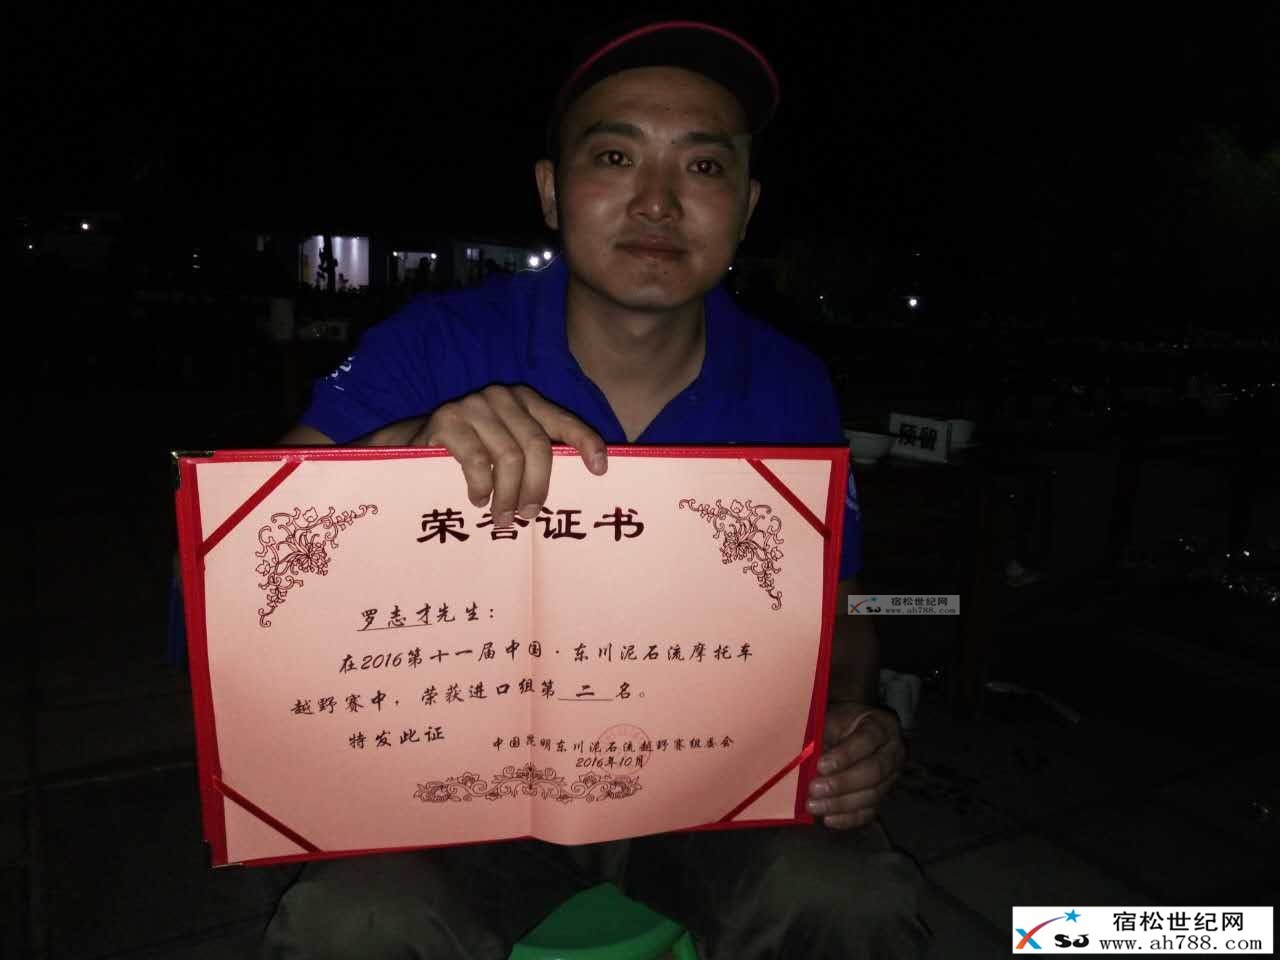 预留
荣誉证书
罗志才先生：
在2016第十一届中国·东川泥石流摩托车
越野赛中，荣获进口组第 二 名。
特发此证
中国昆明东川泥石流越野赛组委会
2016年10月
宿松世纪网
XSJ www.ah788.com
宿松世纪网
XSJ www.ah788.com